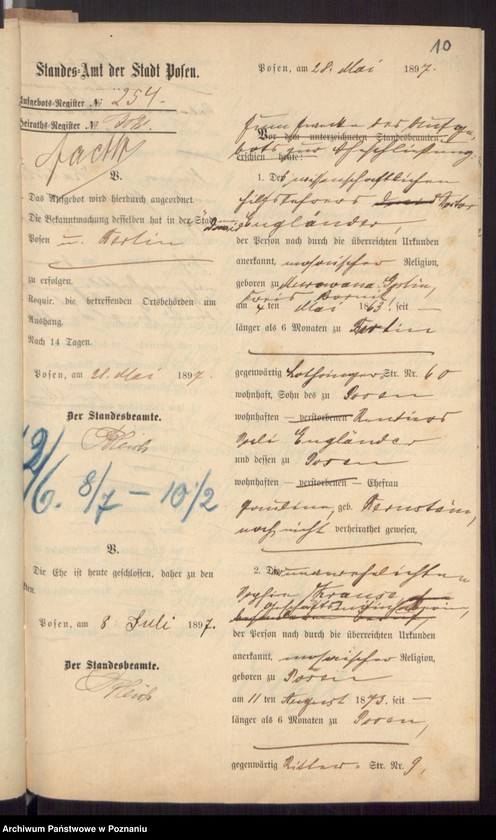 10
Standes-Amt der Stadt Posen.
Aufgebots-Register № 254.
Heiraths-Register №
V.
Das Aufgebot wird hierdurch angeordnet
Die Bekanntmachung desselben hat in der Stadt
Posen u. Berlin
zu erfolgen.
Requir. die betreffenden Ortsbehörden um
Aushang.
Nach 14 Tagen.
Posen, am 28. Mai 1897.
Der Standesbeamte.
8/7 – 10 1/2
V.
Die Ehe ist heute geschlossen, daher zu den
Posen, am 8 Juli 1897.
Der Standesbeamte.
Posen, am 28. Mai 1897.
Zum Zwecke des Aufge
Vor dem unterzeichneten Standesbeamten
bots zur Eheschließung
erschien heute:
1. Der wissenschaftlichen
Hilfslehrers
Engländer,
der Person nach durch die überreichten Urkunden
anerkannt, mosaischer Religion,
geboren zu Murowana-Goslin,
am 4ten Mai 1863 seit —
länger als 6 Monaten zu Berlin
gegenwärtig Lothringer Str. Nr. 60
wohnhaft, Sohn des zu Posen
wohnhaften — verstorbenen Rentiers
Engländer
und dessen zu Posen
wohnhaften — verstorbenen — Ehefrau
Pauline, geb. Bernstein,
noch nicht verheirathet gewesen,
2. Die unverehelichten
Sophie Krause,
der Person nach durch die überreichten Urkunden
anerkannt, mosaischer Religion,
geboren zu Posen
am 11ten August 1873. seit —
länger als 6 Monaten zu Posen,
gegenwärtig Ritter- Str. Nr. 9,
Archiwum Państwowe w Poznaniu